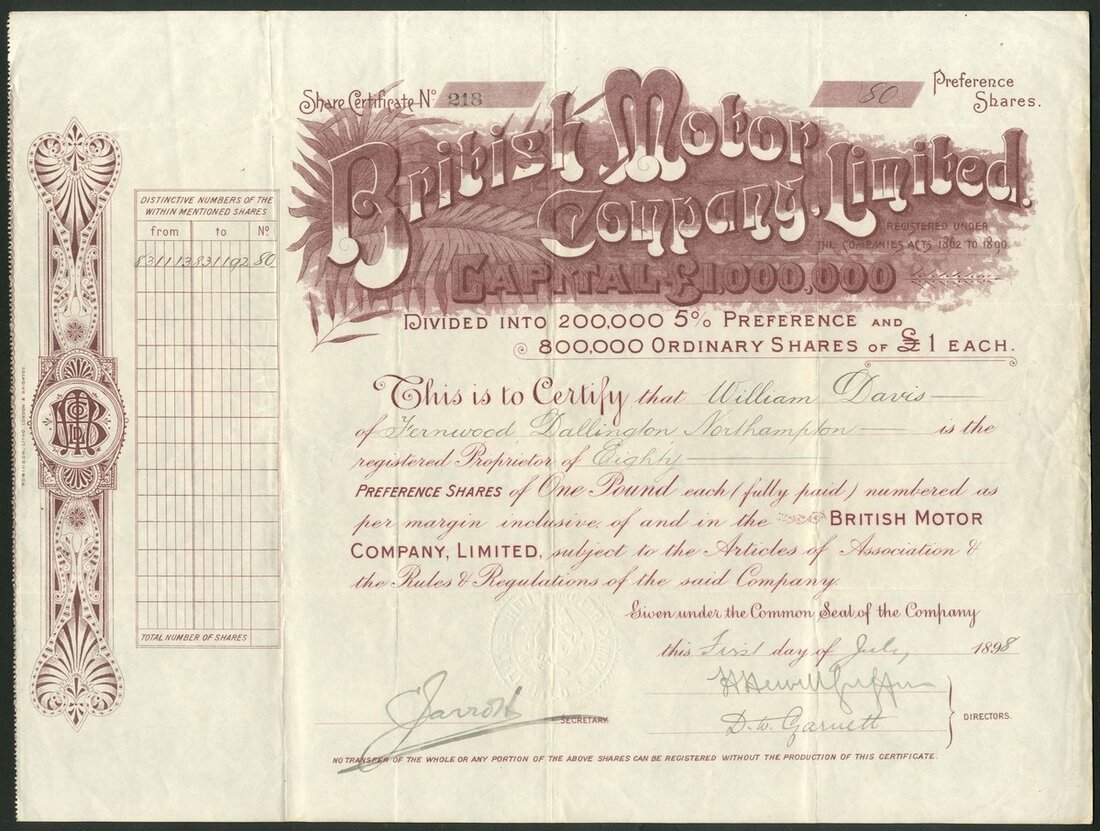 Share Certificate No 218
80 Preference Shares.
British Motor
Company, Limited.
REGISTERED UNDER
THE COMPANIES ACTS 1862 TO 1890
CAPITAL £1,000,000
DIVIDED INTO 200,000 5% PREFERENCE AND
800,000 ORDINARY SHARES OF £1 EACH.
DISTINCTIVE NUMBERS OF THE
WITHIN MENTIONED SHARES
from to No
831113 831192 80
TOTAL NUMBER OF SHARES
This is to Certify that William Davis
of Fernwood Dallington Northampton is the
registered Proprietor of Eighty
PREFERENCE SHARES of One Pound each (fully paid) numbered as
per margin inclusive, of and in the BRITISH MOTOR
COMPANY, LIMITED, subject to the Articles of Association &
the Rules & Regulations of the said Company.
Given under the Common Seal of the Company
this First day of July, 1898
C Jarrott
SECRETARY
D. W. Garnett
DIRECTORS.
NO TRANSFER OF THE WHOLE OR ANY PORTION OF THE ABOVE SHARES CAN BE REGISTERED WITHOUT THE PRODUCTION OF THIS CERTIFICATE.